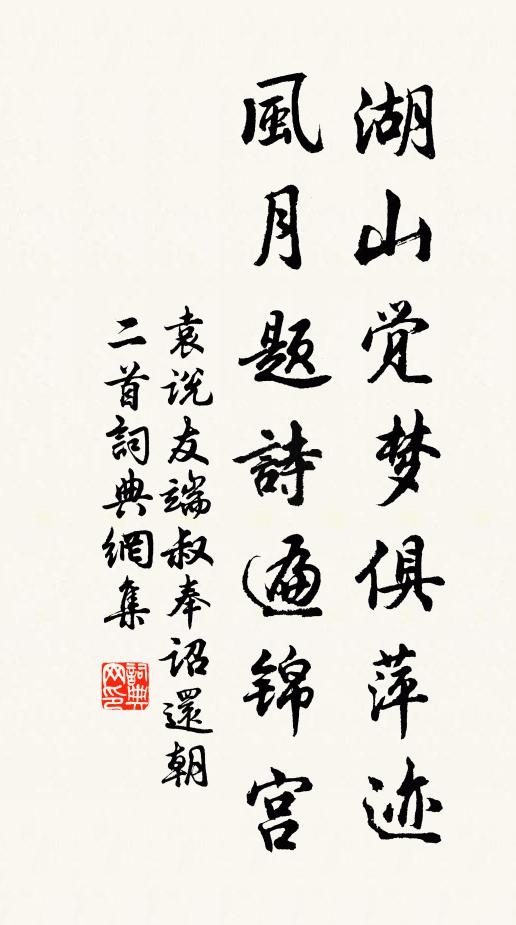 湖山觉梦俱萍迹
風月题詩遍锦宫
袁说友端叔奉诏還朝
二首詞典網集
詞典
网印